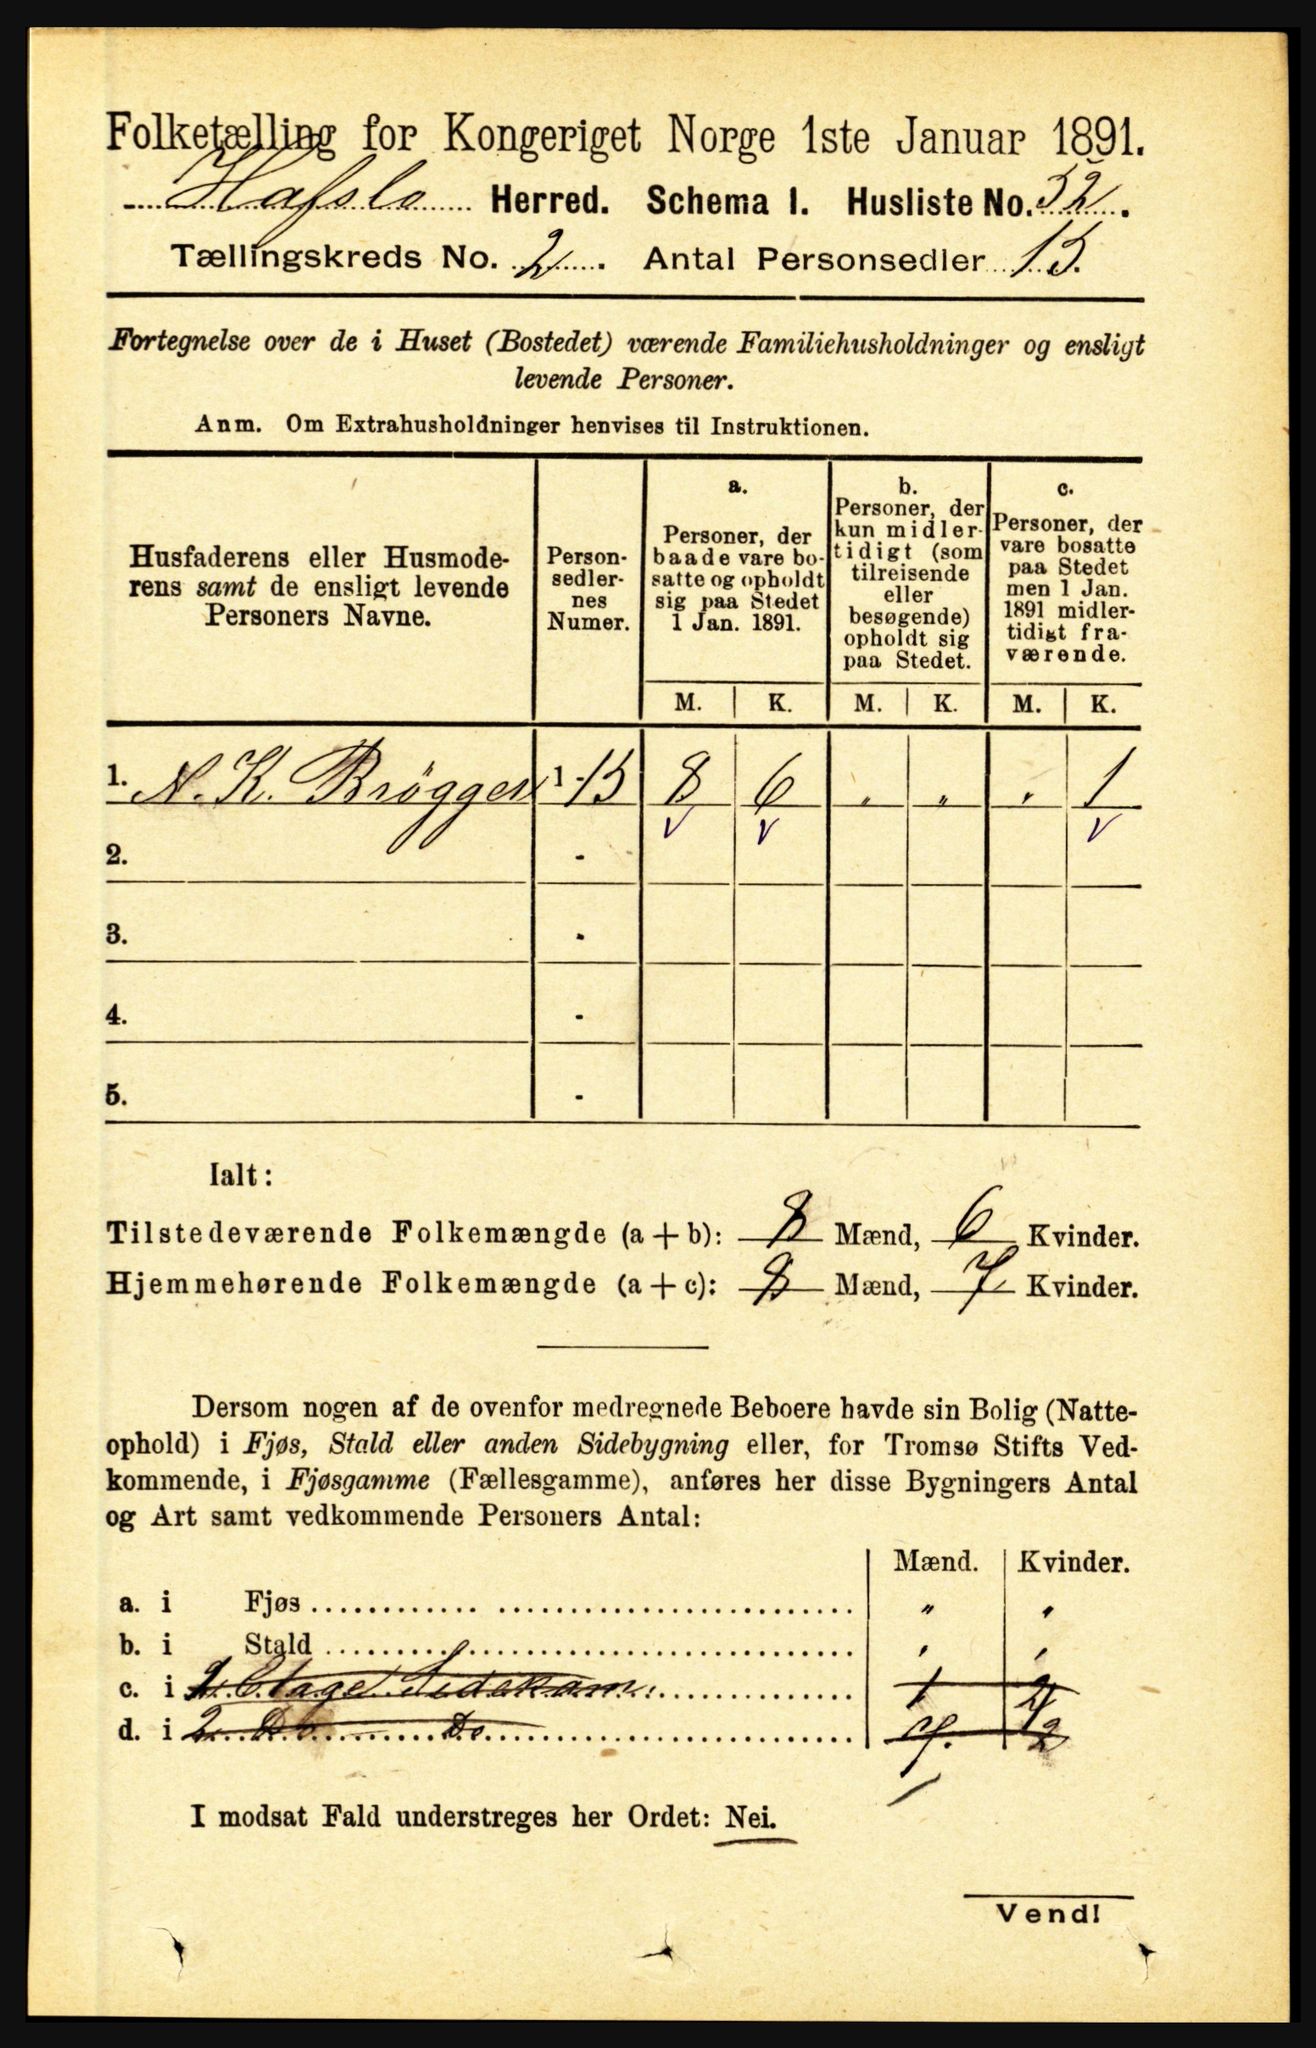 Folketælling for Kongeriget Norge 1ste Januar 1891.
Hafslo Herred. Schema 1. Husliste No. 32.
Tællingskreds No. 2. Antal Personsedler 15.
Fortegnelse over de i Huset (Bostedet) værende Familiehusholdninger og ensligt
levende Personer.
Anm. Om Extrahusholdninger henvises til Instruktionen.
Husfaderens eller Husmode-
rens samt de ensligt levende
Personers Navne.
Person-
sedler-
nes
Numer.
a.
Personer, der
baade vare bo-
satte og opholdt
sig paa Stedet
1 Jan. 1891.
b.
Personer, der
kun midler-
tidigt (som
tilreisende
eller
besøgende)
opholdt sig
paa Stedet.
c.
Personer, der
vare bosatte
paa Stedet
men 1 Jan.
1891 midler-
tidigt fra-
værende.
M. K. M. K. M. K.
1. N. K. Brögger 1-15 8 6 " " " 1
v v v
2. -
3. -
4. -
5. -
Ialt:
Tilstedeværende Folkemængde (a + b): 8 Mænd, 6 Kvinder.
Hjemmehørende Folkemængde (a + c): 8 Mænd, 7 Kvinder.
Dersom nogen af de ovenfor medregnede Beboere havde sin Bolig (Natte-
ophold) i Fjøs, Stald eller anden Sidebygning eller, for Tromsø Stifts Ved-
kommende, i Fjøsgamme (Fællesgamme), anføres her disse Bygningers Antal
og Art samt vedkommende Personers Antal:
Mænd. Kvinder.
a. i Fjøs " "
b. i Stald " "
c. i Etage 1 2
d. i 2 Do Do 2
I modsat Fald understreges her Ordet: Nei.
Vend!